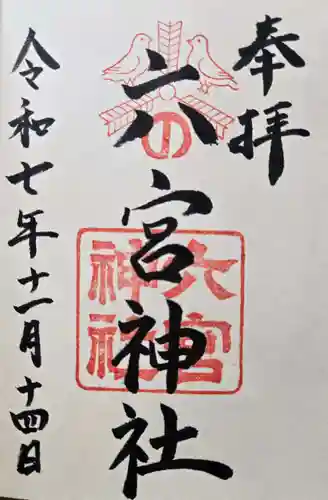 奉拝
六宮神社
の
六宮神社
令和七年十一月十四日